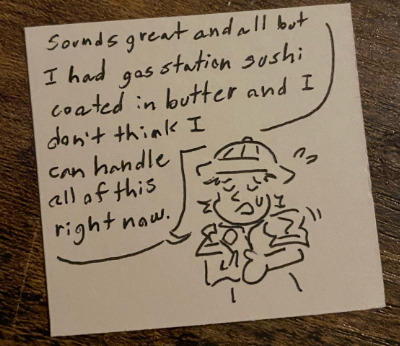 Sounds great and all but
I had gas station sushi
coated in butter and I
don't think I
can handle
all of this
right now.